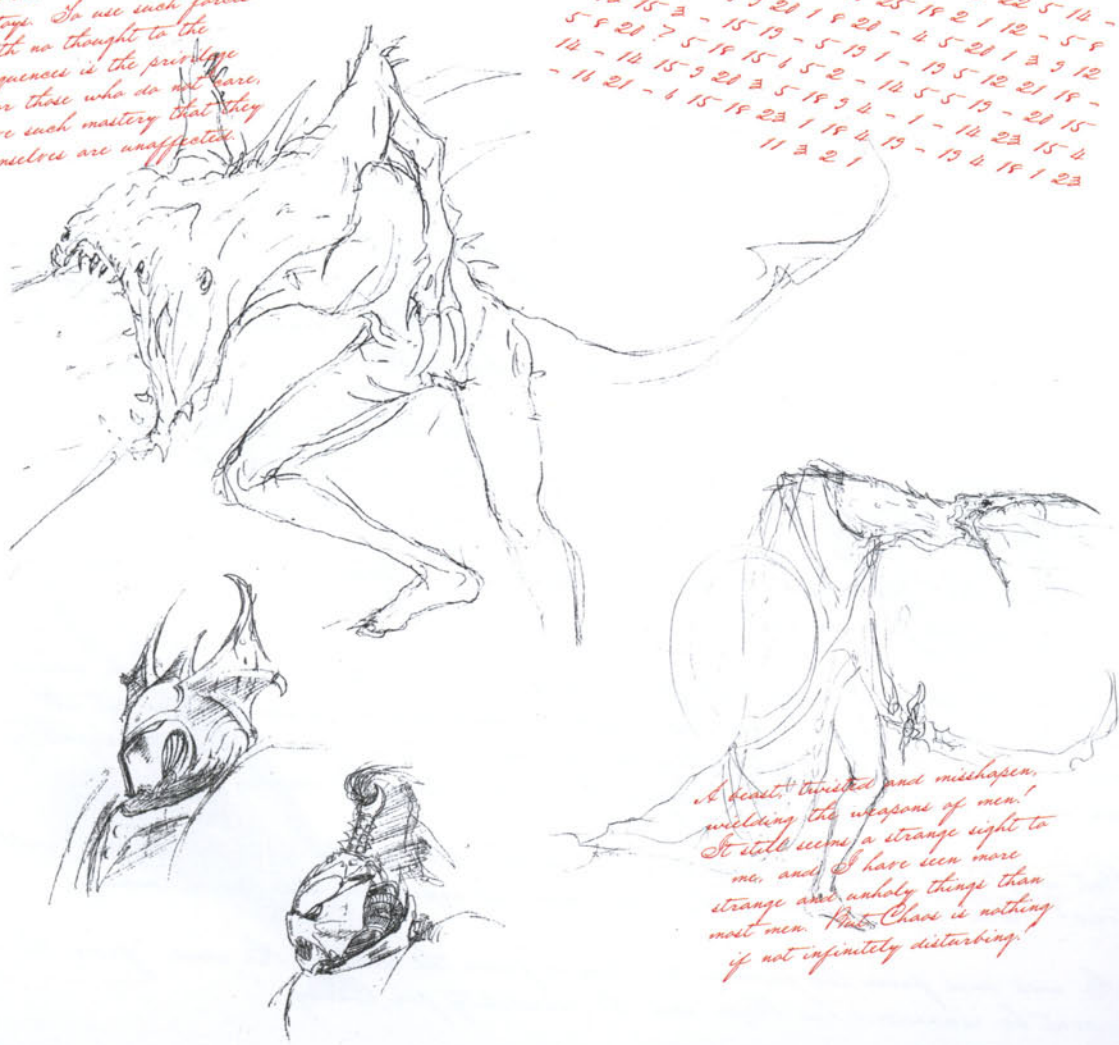 ays. To use such forces
th no thought to the
quences is the privilege
r those who do not care,
ve such mastery that they
mselves are unaffected.
22 5 14 -
25 18 2 1 12 - 5 8
9 20 1 8 20 - 4 5 20 1 3 9 12
15 3 - 15 19 - 5 19 1 - 19 5 12 21 18 -
5 8 20 ? 5 18 15 6 5 2 - 14 5 5 19 - 20 15
14 - 14 15 9 20 3 5 18 9 4 - 1 - 14 23 15 4
- 16 21 - 6 15 18 23 1 18 4 19 - 19 4 18 1 23
11 3 2 1
A beast, twisted and misshapen,
wielding the weapons of men!
It still seems a strange sight to
me, and I have seen more
strange and unholy things than
most men. But Chaos is nothing
if not infinitely disturbing.